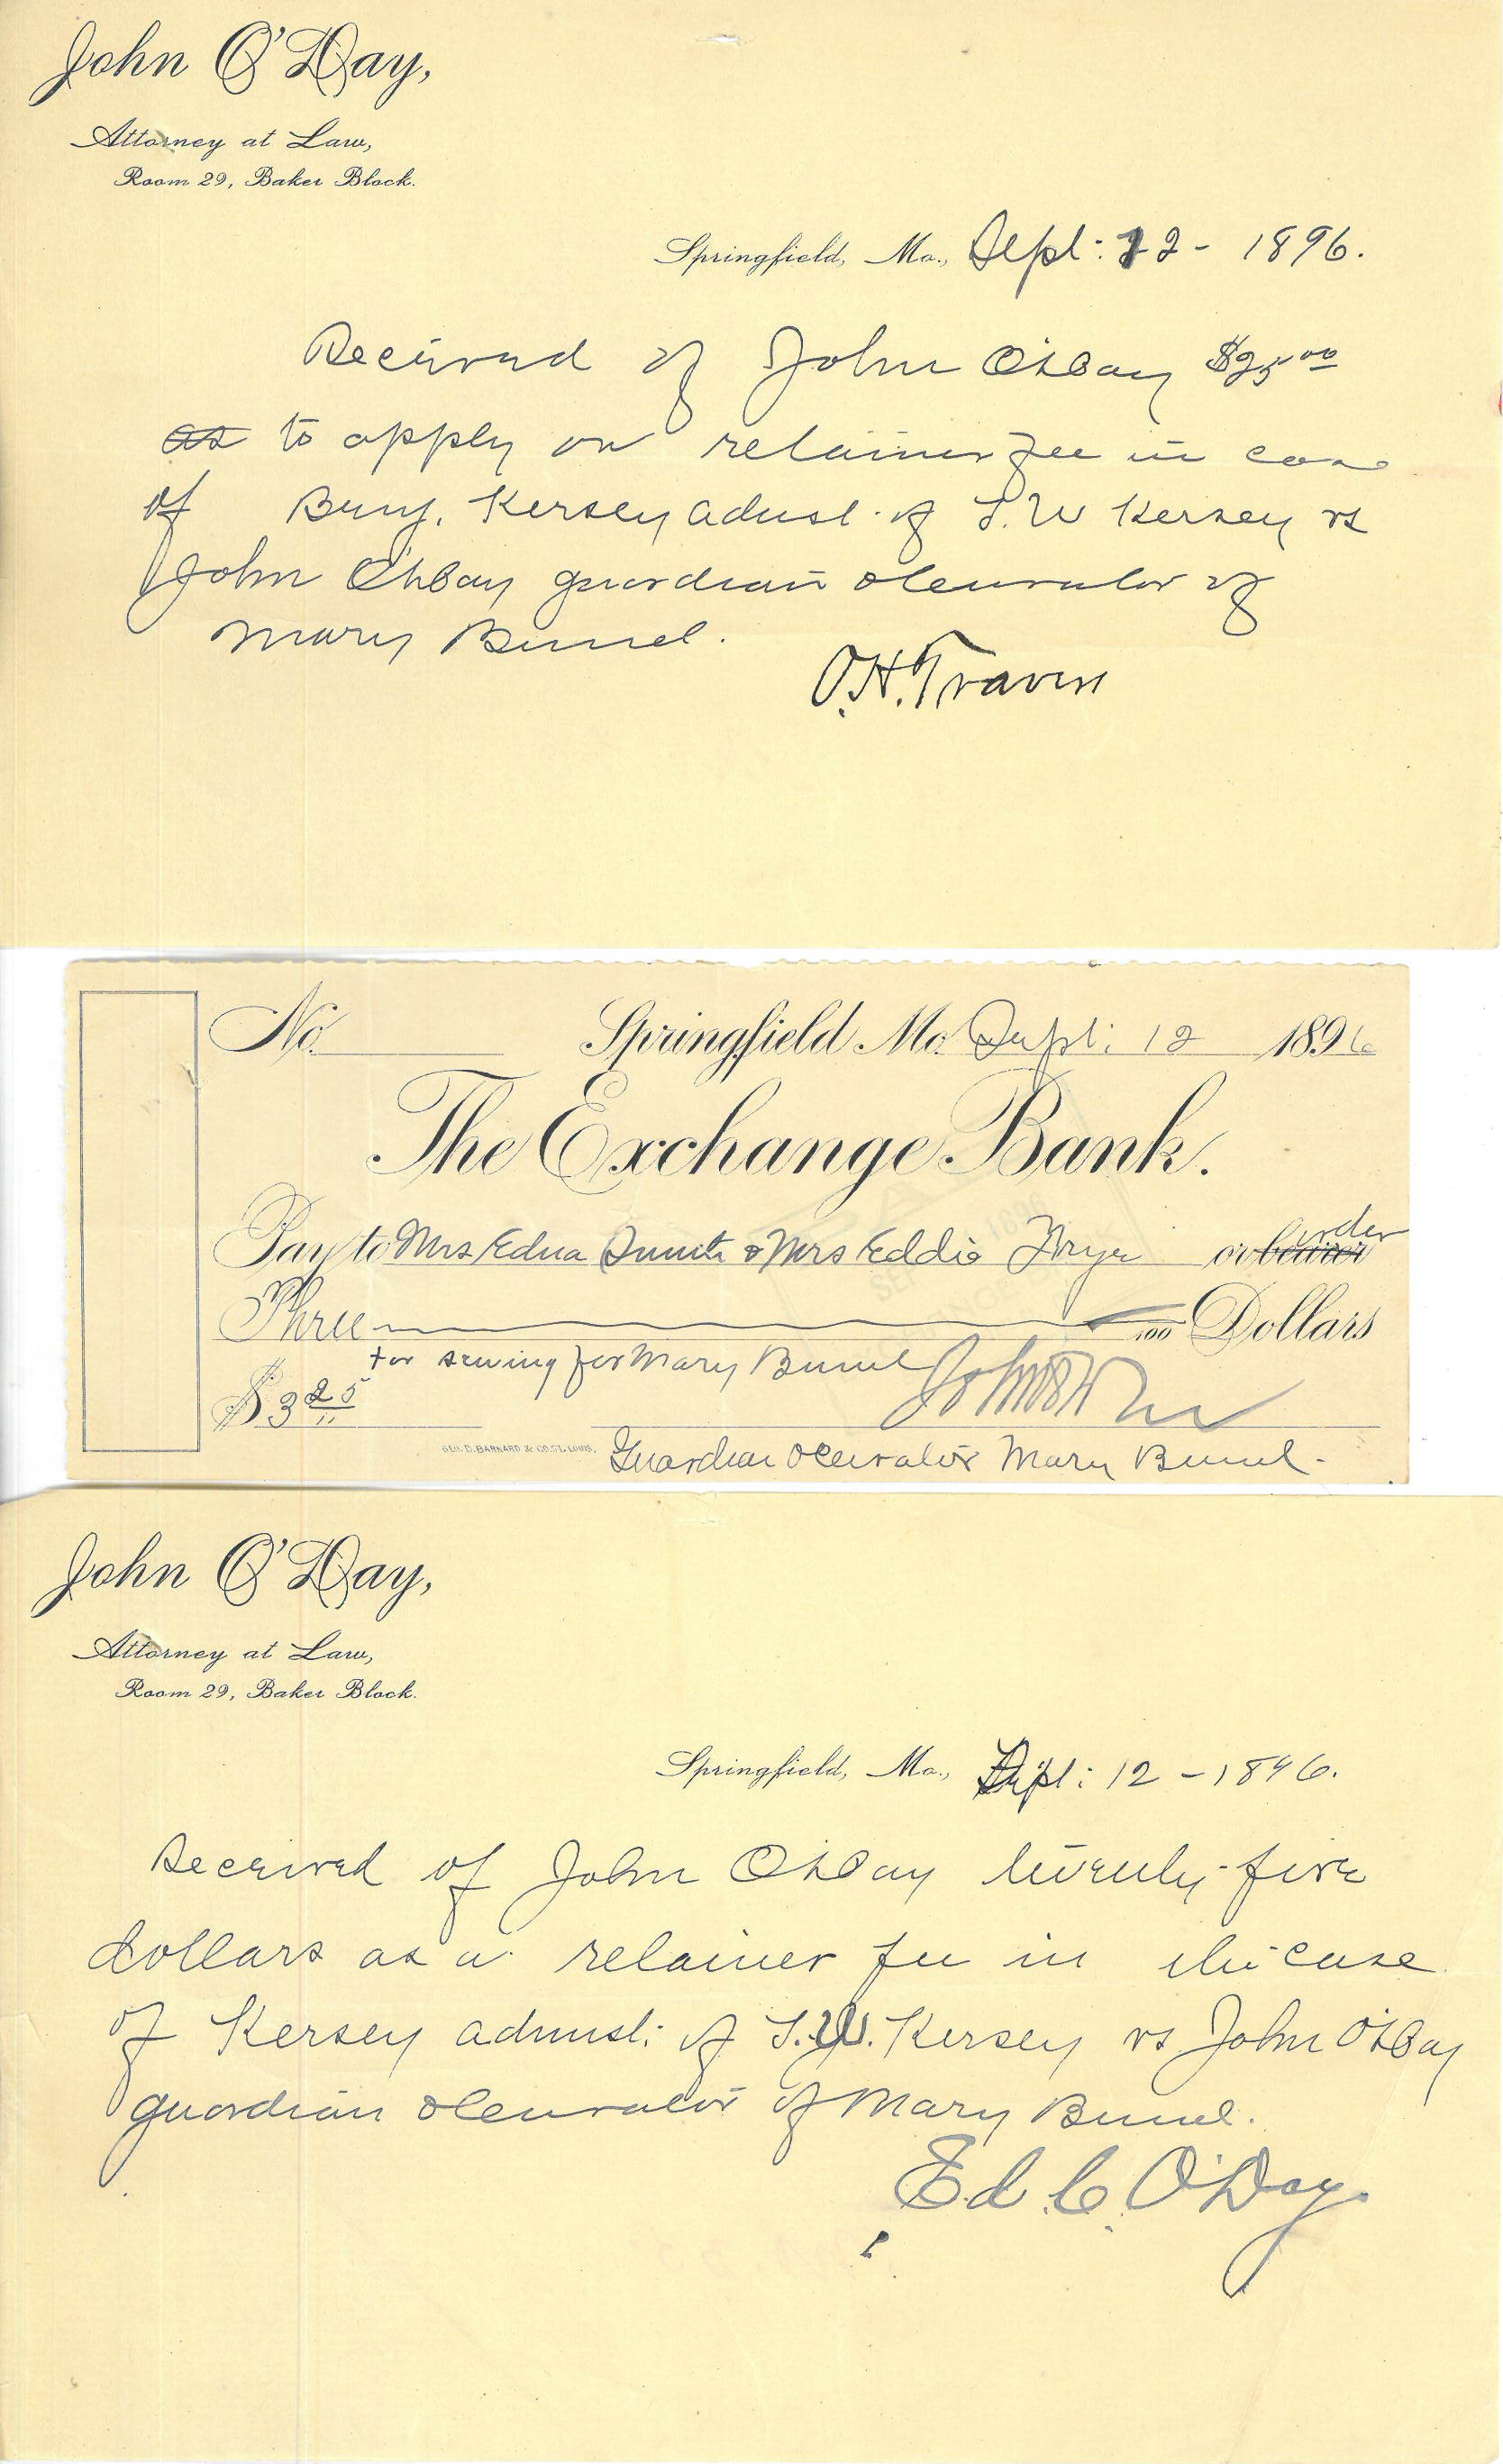 John O'Day,
Attorney at Law,
Room 29, Baker Block.
Springfield, Mo., Sept: 12 - 1896.
Received of John O'Day $25 00
as to apply on retainer fee in case
of Benj. Kersey admst. of S. W Kersey vs
John O'Day guardian & curator of
Mary Bunel.
O. H. Travers
No. Springfield Mo. Sept: 12 1896
The Exchange Bank.
Pay to Mrs Edna & Mrs Eddie or bearer order
Three /100 Dollars
For sewing for Mary Bunel
$ 3 25
GEO. D. BARNARD & CO. ST. LOUIS.
Guardian & Curator Mary Bunel -
John O'Day,
Attorney at Law,
Room 29, Baker Block.
Springfield, Mo., Sept: 12 - 1896.
Received of John O'Day twenty-five
dollars as a retainer fee in the case
of Kersey admst: of S. W. Kersey vs John O'Day
guardian & curator of Mary Bunel.
Ed. C. O'Day.